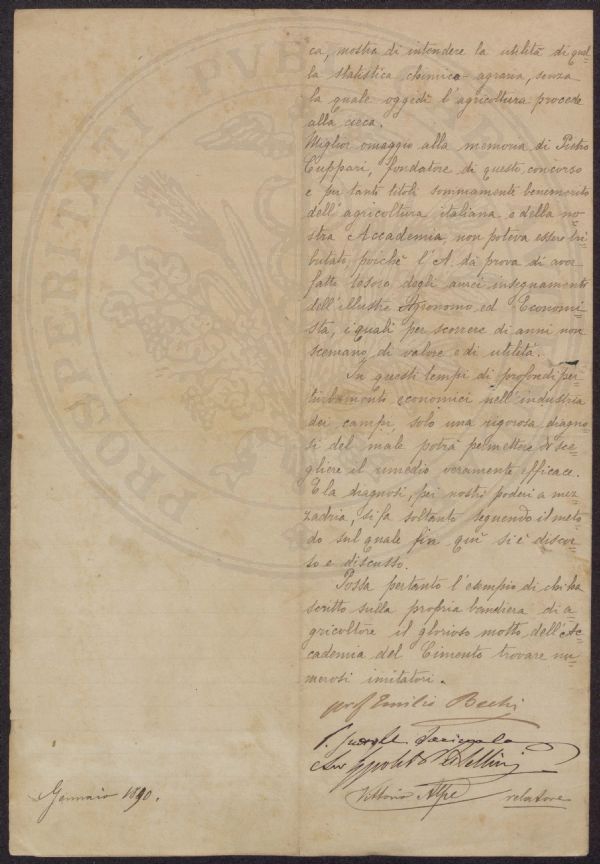 ca, mostra di intendere la utilità di quel=
la statistica chimico-agraria, senza
la quale oggidì l'agricoltura procede
alla cieca.
Miglior omaggio alla memoria di Pietro
Cuppari, fondatore di questo concorso
e per tanti titoli sommamente benemerito
dell'agricoltura italiana e della no=
stra Accademia, non poteva essere tri=
butato, poichè l'A. dà prova di aver
fatto tesoro degli aurei insegnamenti
dell'illustre Agronomo ed Economi=
sta, i quali per scorrere di anni non
scemano di valore e di utilità.
In questi tempi di profondi per=
turbamenti economici nell'industria
dei campi, solo una rigorosa diagno=
si del male potrà permettere di sce=
gliere il rimedio veramente efficace.
E la diagnosi, pei nostri poderi a mez=
zadria, si fa soltanto seguendo il meto=
do sul quale fin quì si è discor=
so e discusso.
Possa pertanto l'esempio di chi ha
scritto sulla propria bandiera di a=
gricoltore il glorioso motto dell'Ac=
cademia del Cimento trovare nu=
merosi imitatori.
prof Emilio Bechi
Vittorio Alpe relatore
Gennaio 1890.
PROSPERITATI PVB